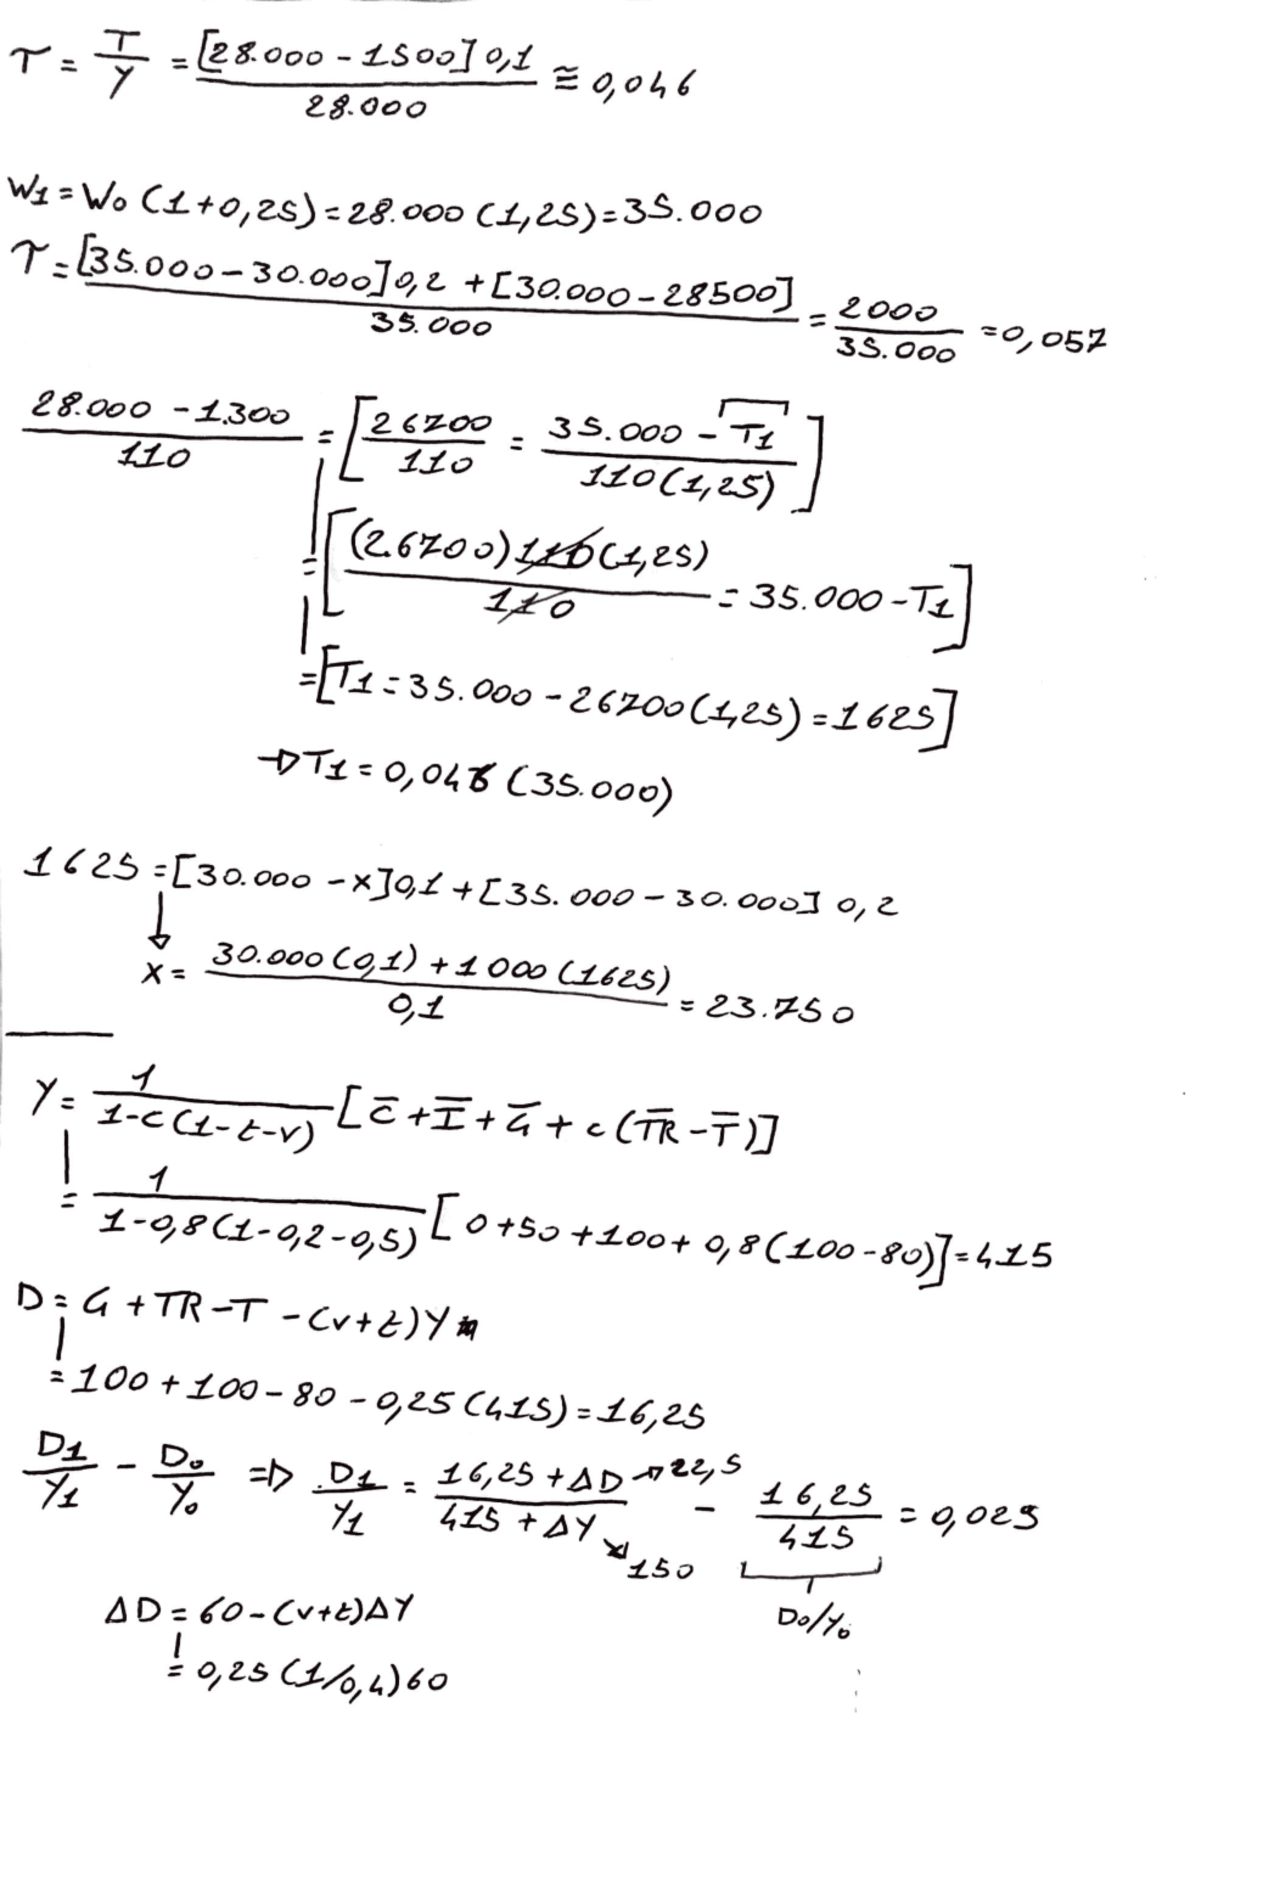 τ = T/Y = [28.000 - 1500] 0,1 / 28.000 ≅ 0,046
W1 = W0 (1+0,25) = 28.000 (1,25) = 35.000
τ = [35.000 - 30.000] 0,2 + [30.000 - 28500] / 35.000 = 2000 / 35.000 = 0,057
28.000 - 1.300 / 110 = [26700 / 110 = 35.000 - T1 / 110(1,25)]
= [(26700) 110 (1,25) / 110 = 35.000 - T1]
= [T1 = 35.000 - 26700 (1,25) = 1625]
→ T1 = 0,046 (35.000)
1625 = [30.000 - x] 0,1 + [35.000 - 30.000] 0,2
↓
X = 30.000 (0,1) + 1000 (1625) / 0,1 = 23.750
Y = 1 / 1-c(1-t-v) [C̄ + Ī + Ḡ + c (T̄R̄ - T̄)]
= 1 / 1-0,8(1-0,2-0,5) [0 + 50 + 100 + 0,8 (100 - 80)] = 415
D = G + TR - T - (v+t) Y
= 100 + 100 - 80 - 0,25 (415) = 16,25
D1/Y1 - D0/Y0 ⇒ D1/Y1 = 16,25 + ΔD → 22,5 / 415 + ΔY ↘ 150 - 16,25 / 415 = 0,025
D0/Y0
ΔD = 60 - (v+t) ΔY
= 0,25 (1/0,4) 60